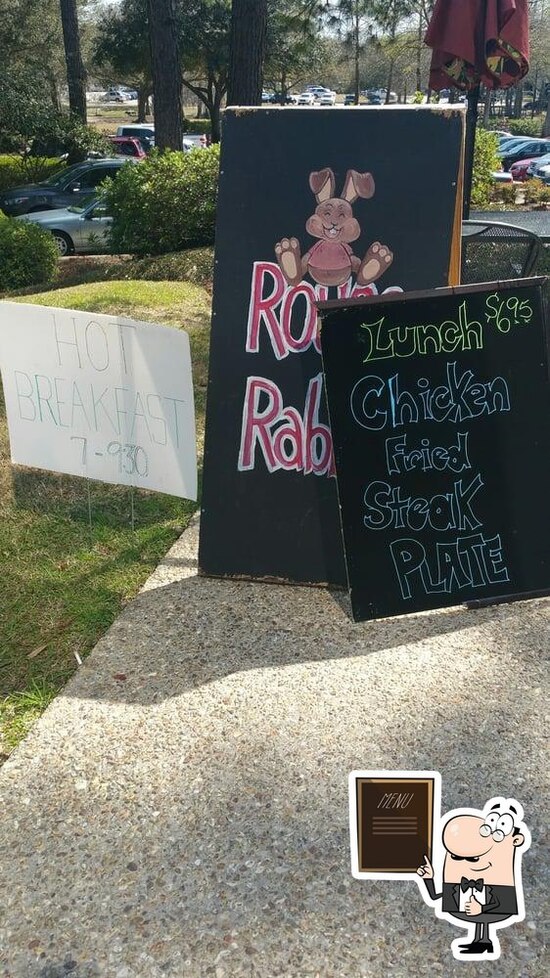 HOT
BREAKFAST
7-930
Lunch $6.95
Chicken
Fried
Steak
PLATE
MENU